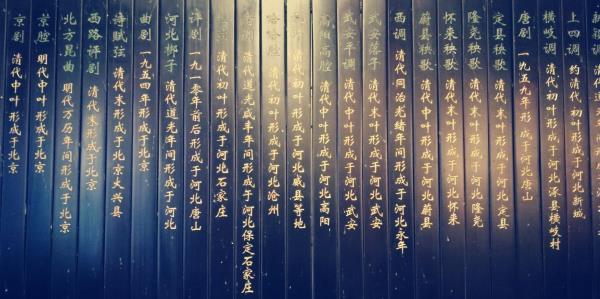 京剧 清代中叶 形成于北京
京腔 明代中叶 形成于北京
北方昆曲 明代万历年间形成于北京
西路评剧 清代末形成于北京
诗赋弦 清代末形成于北京大兴县
曲剧 一九五四年形成于北京
河北梆子 清代道光年间形成于河北
评剧 一九一零年前后形成于河北唐山
清代初叶形成于河北石家庄
清代道光咸丰年间形成于河北保定石家庄
哈哈腔 清代初叶形成于河北沧州
清代初叶形成于河北威县等地
高阳高腔 清代中叶 形成于河北高阳
武安平调 清代中叶 形成于河北武安
武安落子 清代末叶 形成于河北武安
西调 清代同治光绪年间形成于河北永年
蔚县秧歌 清代中叶形成于河北蔚县
怀来秧歌 清代末叶形成于河北怀来
隆尧秧歌 清代末叶形成于河北隆尧
定县秧歌 清代末叶形成于河北定县
唐剧 一九五九年形成于河北唐山
横岐调 清代初叶形成于河北涿县横岐村
上四调 约清代初叶 形成于河北新城